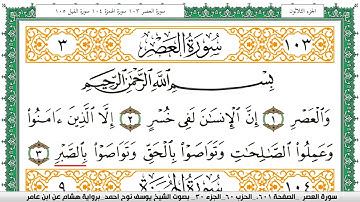 الجزء الثلاثون سورة العصر ١٠٣ سورة الهمزة ١٠٤ سورة الفيل ١٠٥
١٠٣ سُورَةُ العَصْرِ ٣
بِسْمِ اللَّهِ الرَّحْمَٰنِ الرَّحِيمِ
وَالْعَصْرِ ١ إِنَّ الْإِنسَانَ لَفِي خُسْرٍ ٢ إِلَّا الَّذِينَ ءَامَنُوا
وَعَمِلُوا الصَّالِحَاتِ وَتَوَاصَوْا بِالْحَقِّ وَتَوَاصَوْا بِالصَّبْرِ ٣
١٠٤ سُورَةُ الهُمَزَةِ ٩
سورة العصر _الصفحة ٦٠١_ الحزب ٦٠_ الجزء ٣٠_ بصوت الشيخ يوسف نوح احمد برواية هشام عن ابن عامر